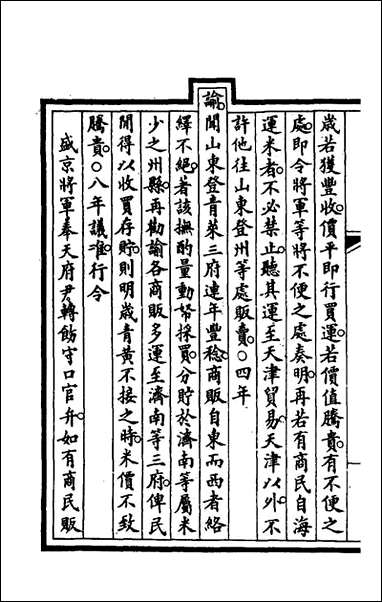 歲若獲豐收價平即行買運若價值騰貴有不便之
處即令將軍等將不便之處奏明再若有商民自海
運米者不必禁止聽其運至天津貿易天津以外不
許他往山東登州等處販賣○四年
諭聞山東登青萊三府連年豐稔商販自東而西者絡
繹不絕著該撫酌量動帑採買分貯於濟南等屬米
少之州縣再勸諭各商販多運至濟南等三府俾民
間得以收買存貯則明歲青黃不接之時米價不致
騰貴○八年議准行令
盛京將軍奉天府尹轉飭守口官弁如有商民販